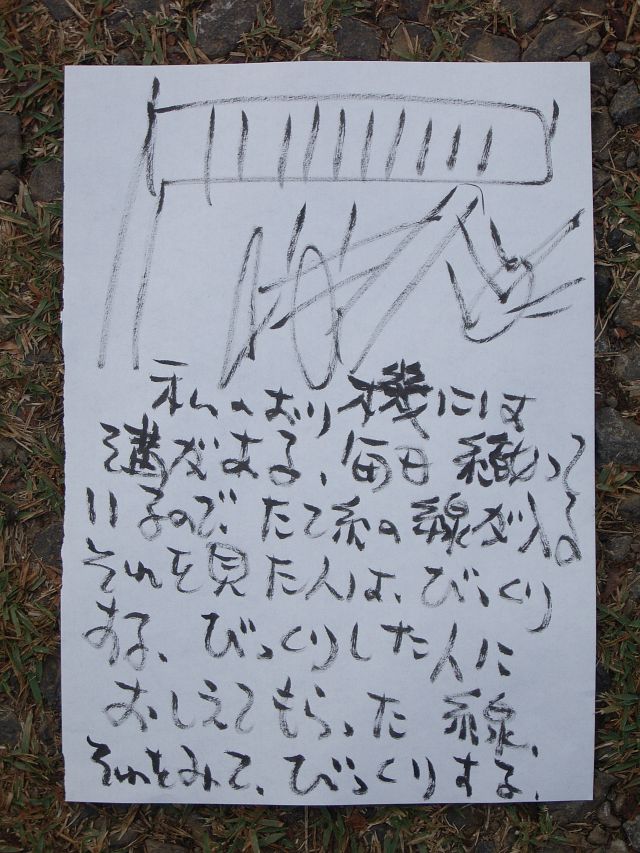 私のおり機には
溝がある、毎日織って
いるので、たて糸の線が入る。
それを見た人は、びっくり
する、びっくりした人に
おしえてもらった線、
それをみて、びっくりする、